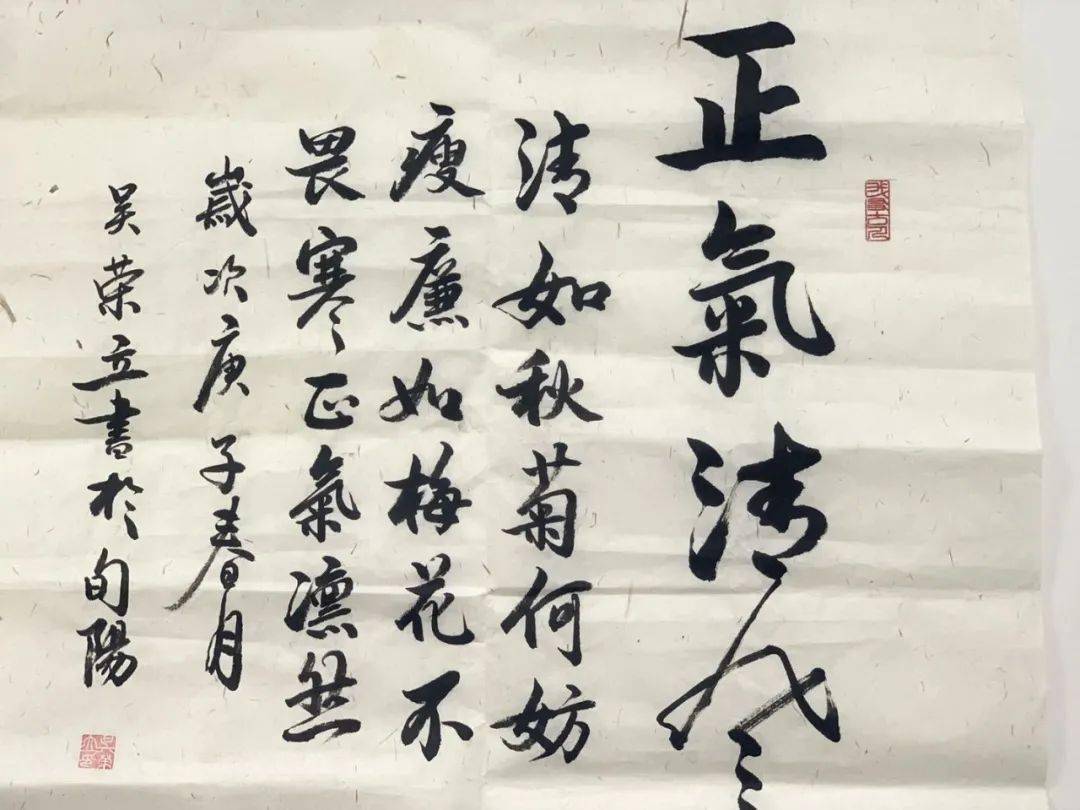 正氣清風
清如秋菊何妨
瘦廉如梅花不
畏寒正氣凛然
歲次庚子春月
吴荣立書於旬陽